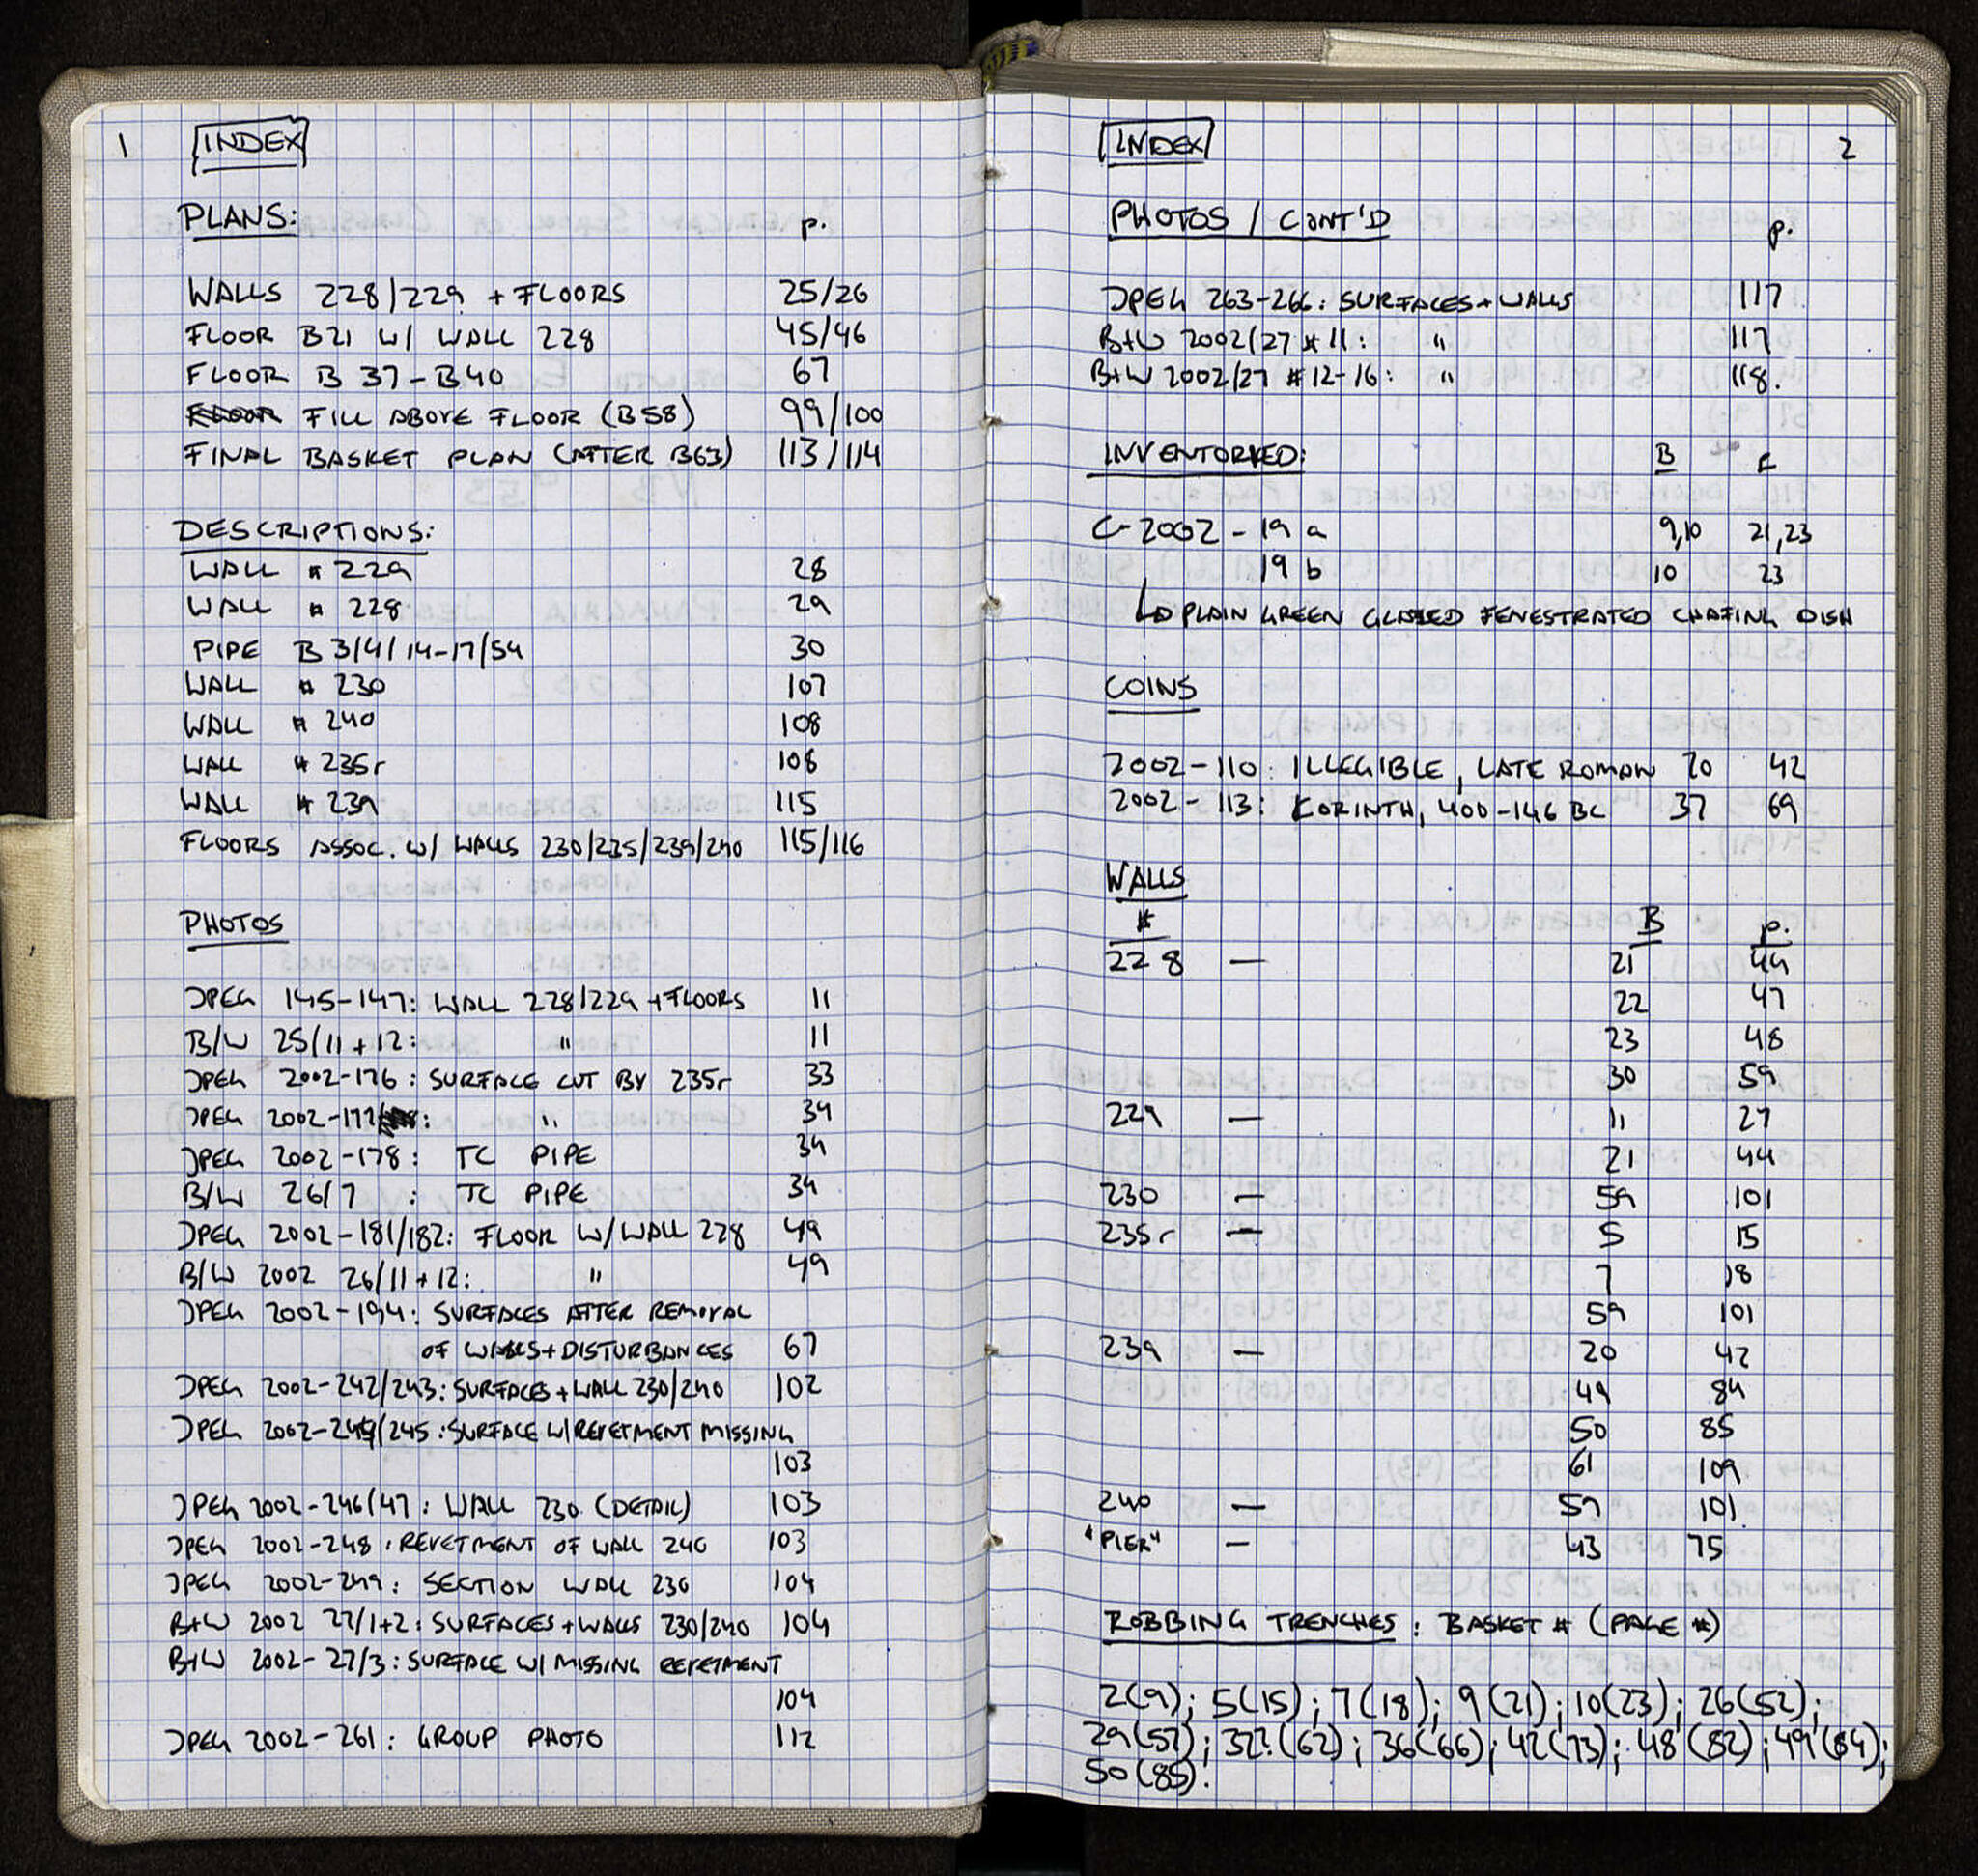 1
INDEX
PLANS: p.
WALLS 228/229 + FLOORS 25/26
FLOOR B21 W/ WALL 228 45/46
FLOOR B 37-B40 67
FILL ABOVE FLOOR (B58) 99/100
FINAL BASKET PLAN (AFTER B63) 113/114
DESCRIPTIONS:
WALL # 229 28
WALL # 228 29
PIPE B 3/4/14-17/54 30
WALL # 230 107
WALL # 240 108
WALL # 235r 108
WALL # 239 115
FLOORS ASSOC. W/ WALLS 230/235/239/240 115/116
PHOTOS
JPEG 145-147: WALL 228/229 + FLOORS 11
B/W 25/11+12: " 11
JPEG 2002-176: SURFACE CUT BY 235r 33
JPEG 2002-177: " 34
JPEG 2002-178: TC PIPE 34
B/W 26/7 : TC PIPE 34
JPEG 2002-181/182: FLOOR W/ WALL 228 49
B/W 2002 26/11+12: " 49
JPEG 2002-194: SURFACES AFTER REMOVAL
OF WALLS+DISTURBANCES 67
JPEG 2002-242/243: SURFACES+WALL 230/240 102
JPEG 2002-244/245: SURFACE W/REVETMENT MISSING
103
JPEG 2002-246/47: WALL 230 (DETAIL) 103
JPEG 2002-248: REVETMENT OF WALL 240 103
JPEG 2002-249: SECTION WALL 230 104
B+W 2002 27/1+2: SURFACES+WALLS 230/240 104
B+W 2002-27/3: SURFACE W/ MISSING REVETMENT
104
JPEG 2002-261: GROUP PHOTO 112
INDEX 2
PHOTOS / CONT'D p.
JPEG 263-266: SURFACES+WALLS 117
B+W 2002/27 #11: " 117
B+W 2002/27 #12-16: " 118.
INVENTORIED: B P
C-2002-19 a 9,10 21,23
19 b 10 23
PLAIN GREEN GLAZED FENESTRATED CHAFING DISH
COINS
2002-110: ILLEGIBLE, LATE ROMAN 20 42
2002-113: KORINTH, 400-146 BC 37 69
WALLS
# B p.
228 — 21 44
22 47
23 48
30 59
229 — 11 27
21 44
230 — 59 101
235r — 5 15
7 18
59 101
239 — 20 42
49 84
50 85
61 109
240 — 59 101
"PIER" — 43 75
ROBBING TRENCHES: BASKET # (PAGE #)
2(9); 5(15); 7(18); 9(21); 10(23); 26(52);
29(57); 32?(62); 36(66); 42(73); 48(82); 49(84);
50(85).